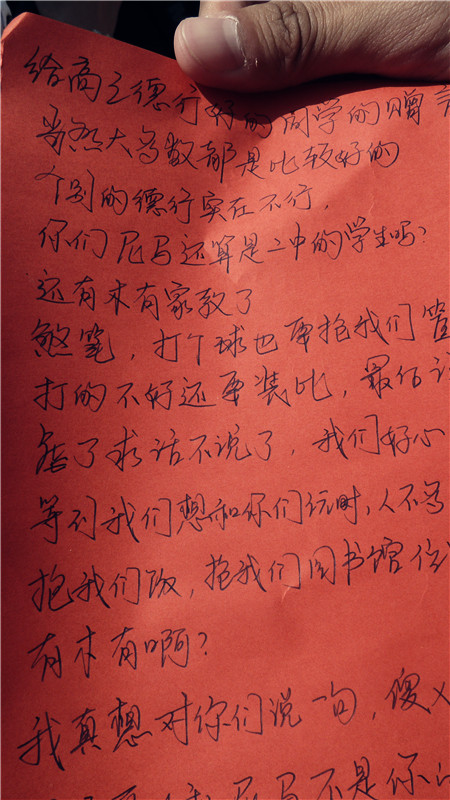 给高三德行好的同学的赠言
当然大多数都是比较好的
个别的德行实在不行,
你们尼马还算是二中的学生吗?
还有木有家教了
煞笔,打个球也要抢我们篮
打的不好还要装比,最后
了求话不说了,我们好心
等到我们想和你们玩时,人不多
抢我们饭,抢我们图书馆位
有木有啊?
我真想对你们说一句,傻
尼马不是你